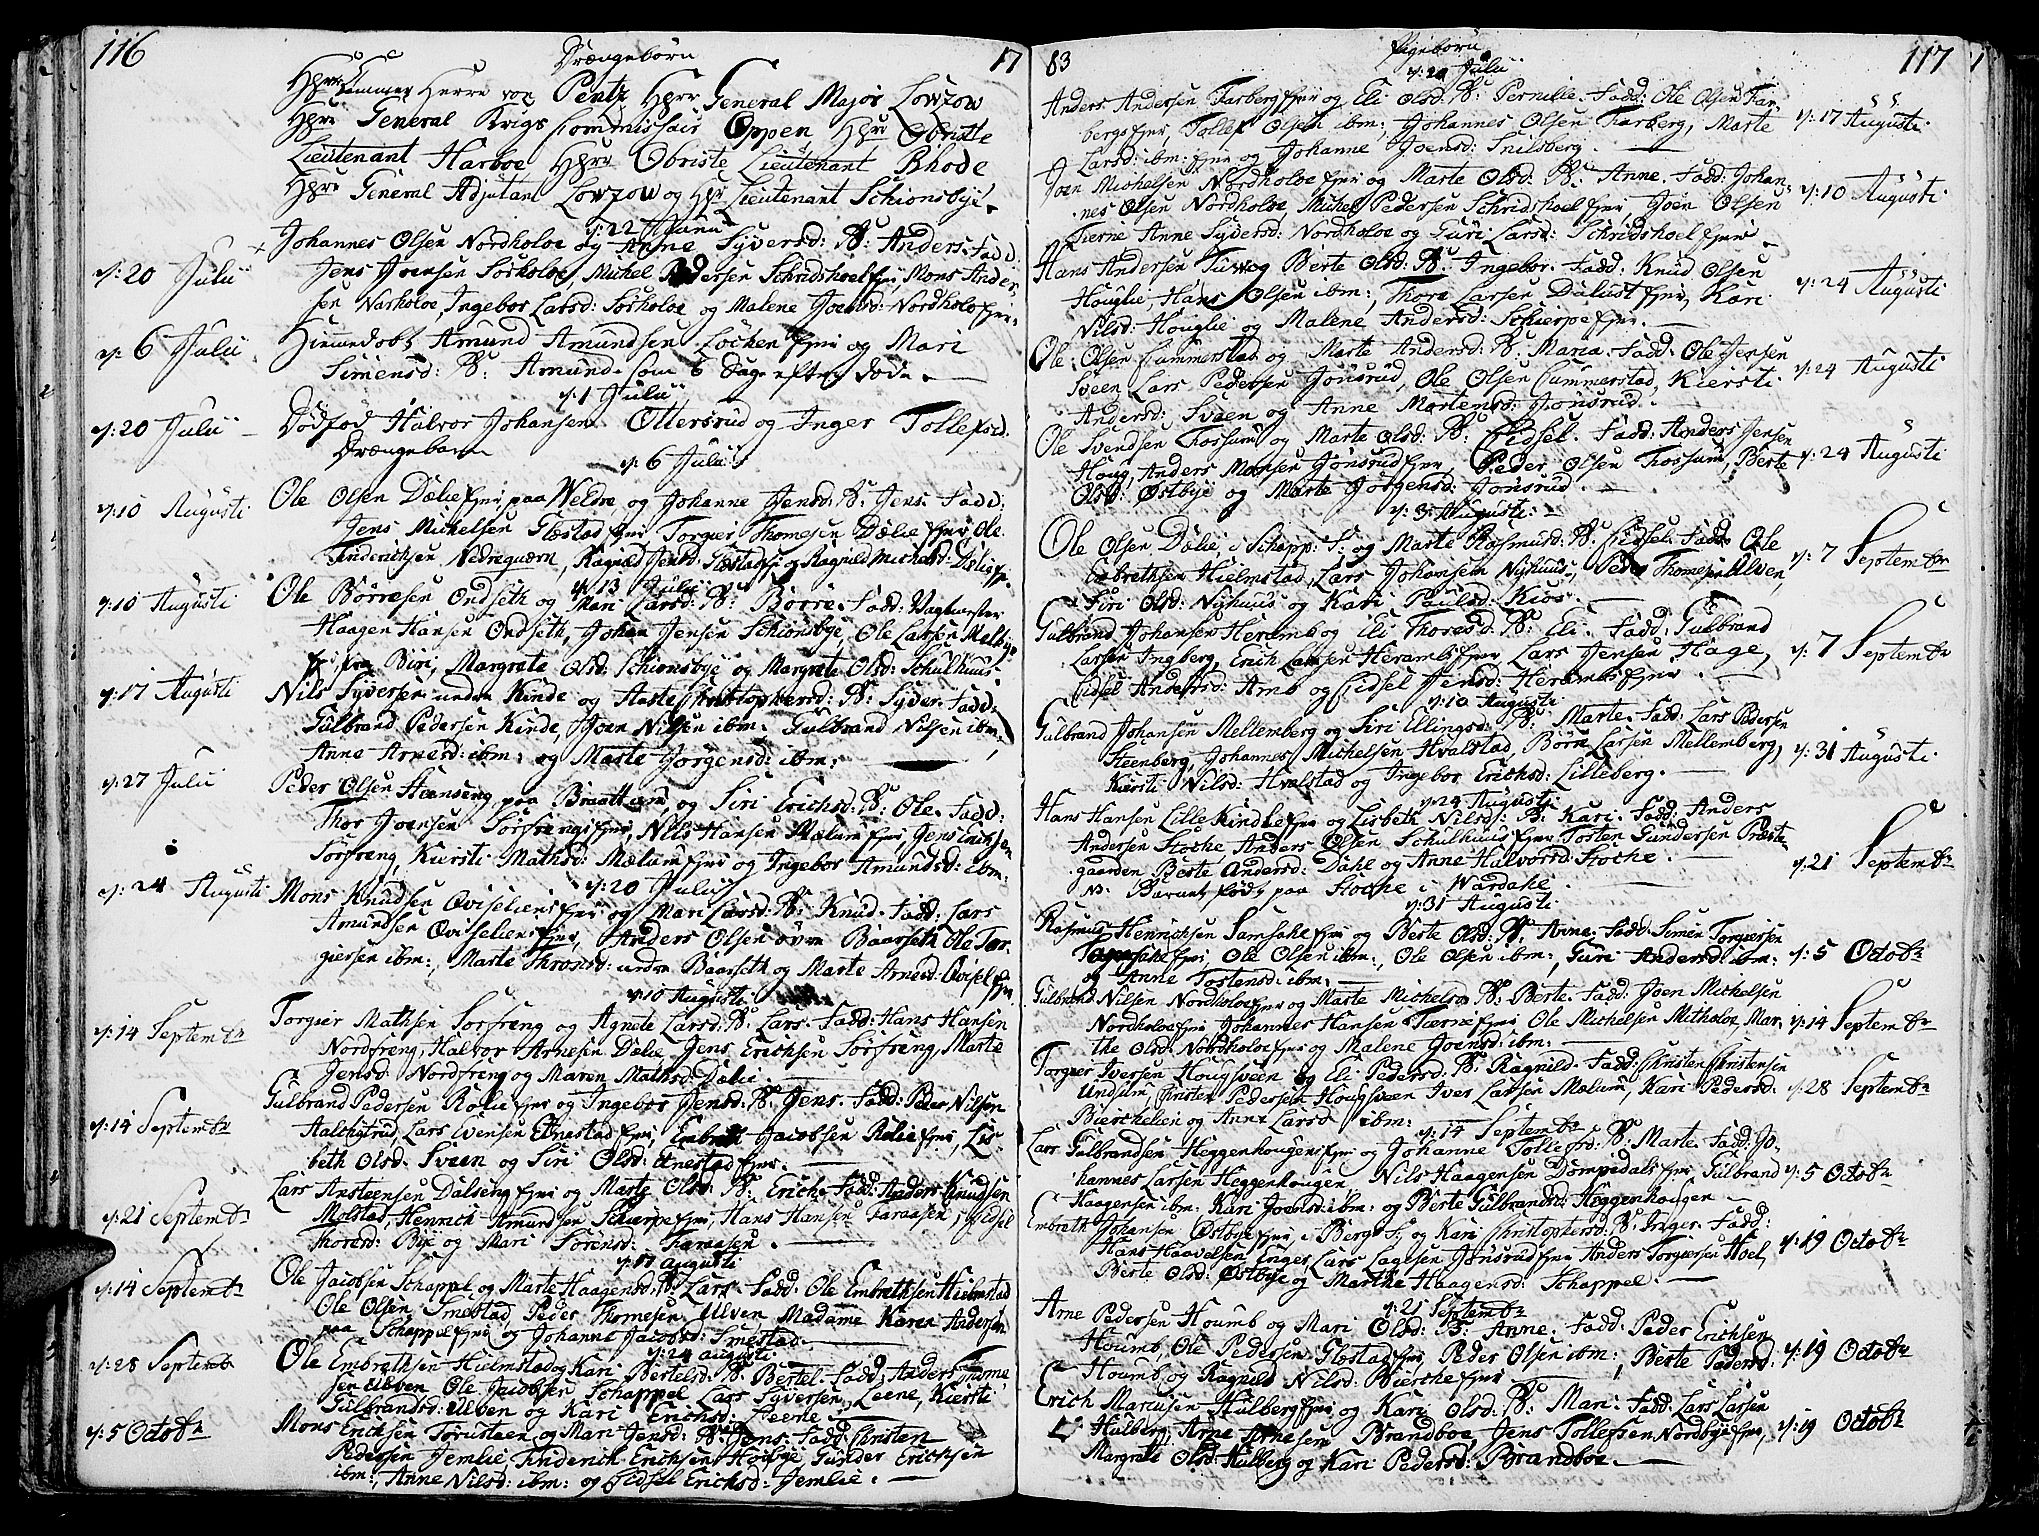 116 Drængebörn 17
Hprr Kammer Herre von Pentz Hprr General Major Lowzow
Hprr General Krigs Commissair Oppen Hprr Obriste
Lieutenant Harboe Hprr Obriste Lieutenant Rhode
Hprr General Adjutant Lowzow og Hpr Lieutenant Schionsbye.
d: 22 Junii
Johannes Olsen Nordholoe og Anne Syversd: B: Anders. Fadd:
d: 20 Julii Jens Joensen Sörholoe, Michel Pedersen Schridshoel Ejer Mons Ander-
sen Narholoe, Ingebor Larsd: Sörholoe og Malene Joensd: Nordholo Ejer.
Himmedöbt Amund Amundsen Löcken Ejer og Mari
d: 6 Julii Simensd: B: Amund. som 8 Dage efter döde.
d: 1 Julii
d: 20 Julii Dödfød Halvor Johansen Ottersrud og Inger Tollefsd:
Drængebarn
d: 6 Julii
Ole Olsen Dælie Ejer paa Weldre og Johanne Jensd: B: Jens. Fadd:
d: 10 Augusti Jens Michelsen Glæstad Ejer Torgier Thomesen Dælie Ejer, Ole
Friderichsen Nedreqværn, Ragnild Jensd: Glæstad Ejer og Ragnild Michelsd: Dælie Ejer
d: 13 Julii
d: 10 Augusti Ole Börresen Ondseth og Mari Larsd: B: Börre. Fadd: Vagtmester
Haagen Hansen Ondseth, Johan Jensen Schionsbye, Ole Larsen Melbye
fra Biri, Margrete Olsd: Schionsbye og Margrete Olsd: Schulhuus.
d: 17 Augusti Nils Syversen under Kinde og Aaste Christophersd: B: Syver. Fadd:
Gulbrand Pedersen Kinde, Joen Nilsen ibm: Gulbrand Nilsen ibm:,
Anne Arnesd: ibm: og Marte Jörgensd: ibm:
d: 27 Julii Peder Olsen Stenseng paa Braattum og Siri Erichsd: B: Ole. Fadd:
Thor Joensen Sörfreng Ejer, Nils Hansen Mælum Ejer, Jens Erichsen
Sörfreng, Kiersti Mathsd: Mælum Ejer og Ingebor Amundsd: ibm:
d: 20 Julii
d: 24 Augusti Mons Knudsen Qviselien Ejer og Mari Larsd: B: Knud. Fadd: Lars
Amundsen Qviselien Ejer, Anders Olsen övre Baarseth Ole Tor-
giersen ibm:, Marte Thronsd: under Baarseth og Marte Arnesd: Qvisel Ejer
d: 10 Augusti
Torgier Mathsen Sörfreng og Agnete Larsd: B: Lars. Fadd: Hans Hansen
d: 14 Septembr Nordfreng, Halvor Arnesen Dælie, Jens Erichsen Sörfreng, Marte
Jensd: Nordfreng og Maren Mathsd: Dælie
Gulbrand Pedersen Rolie Ejer og Ingebor Jensd: B: Jens. Fadd: Peder Nilsen
d: 14 Septembr Aaltigtrud, Lars Evensen Elnestad Ejer, Embreth Jacobsen Rolie Ejer, Lis-
beth Olsd: Sveen og Siri Olsd: Ernestad Ejer.
Lars Ansteensen Dalseng Ejer og Marte Olsd: B: Erich. Fadd: Anders Knudsen
d: 21 Septembr Molstad, Henrich Amundsen Skierpe Ejer, Hans Hansen Faraasen, Eidsel
Thoresd: Bye og Mari Sörensd: Faraasen.
d: 17 Augusti
d: 14 Septembr Ole Jacobsen Schappel og Marte Haagensd: B: Lars. Fadd: Ole Embrethsen Hielmstad
Ole Olsen Smestad, Peder Thomesen Ulven, Madame Karen Andersen
paa Schappel Ejer og Johanne Jacobsd: Smestad.
d: 24 Augusti
d: 28 Septemb Ole Embrethsen Hielmstad og Kari Bertelsd: B: Bertel. Fadd: Anders Thome-
sen Ulven, Ole Jacobsen Schappel, Lars Syversen Leene, Kiersti
Gulbrandsd: Ulven og Kari Erichsd: Leene
d: 5 Octobr Mons Erichsen Torustuen og Mari Jensd: B: Jens. Fadd: Christen
Pedersen Jemlie, Friderich Erichsen Houbye, Gunder Erichsen
ibm:, Anne Nilsd: ibm: og Eidsel Erichsd: Jemlie.
83 Pigebörn 117
d: 20 Julii
Anders Andersen Farberg Ejer og Eli Olsd: B: Pernille. Fadd: Ole Olsen Far-
bergs Ejer, Tollef Olsen ibm: Johannes Olsen Farberg, Marte d: 17 Augusti
Larsd: ibm: Ejer og Johanne Joensd: Snilsberg.
Joen Michelsen Nordholoe Ejer og Marte Olsd: B: Anne. Fadd: Johan- d: 10 Augusti
nes Olsen Nordholoe, Michel Pedersen Schridshoel Ejer, Joen Olsen
Tierne Anne Syversd: Nordholoe og Guri Larsd: Schridshoel Ejer.
Hans Andersen Tuv og Berte Olsd: B: Ingebor. Fadd: Knud Olsen
Houglie, Hans Olsen ibm:, Thore Larsen Dalust Ejer, Kari d: 24 Augusti
Nilsd: Houglie og Malene Andersd: Schierpe Ejer.
Ole Olsen Cummerstad og Marte Andersd: B: Maria. Fadd: Ole Jensen
Sveen Lars Pedersen Jönsrud, Ole Olsen Cummerstad, Kiersti d: 24 Augusti
Andersd: Sveen og Anne Mortensd: Jönsrud.
Ole Svendsen Fossum og Marte Olsd: B: Eidsel. Fadd: Anders Jensen
Houg, Anders Monsen Jönsrud Ejer, Peder Olsen Fossum, Berte d: 24 Augusti
Olsd: Østbye og Marte Jörgensd: Jönsrud.
d: 3 Augusti
Ole Olsen Dælie, i Schapp: S: og Marte Rasmusd: B: Eidsel. Fadd: Ole
Embrethsen Hielmstad, Lars Johansen Nyhuus, Peder Thomesen Ulven, d: 7 Septembr
Siri Olsd: Nyhuus og Kari Paulsd: Kios.
Gulbrand Johansen Heramb og Eli Thoresd: B: Eli. Fadd: Gulbrand
Larsen Ingberg, Erich Larsen Heramb Ejer Lars Jensen Hage, d: 7 Septembr
Eidsel Andersd: Arnb og Eidsel Jensd: Herambs Ejer.
d: 10 Augusti
Gulbrand Johansen Mellemberg og Siri Ellingsd: B: Marte. Fadd: Lars Pedersen
Steenberg, Johannes Michelsen Hvalstad, Börre Larsen Mellemberg, d: 31 Augusti
Kiersti Nilsd: Hvalstad og Ingebor Erichsd: Lilleberg.
d: 24 Augusti
Hans Hansen Lille Kindlie Ejer og Lisbeth Nilsd: B: Kari. Fadd: Anders
Andersen Stoche, Anders Olsen Schulhuus Ejer, Torsten Gundersen Præste-
gaarden Berte Andersd: Dahl og Anne Halvorsd: Stoche. d: 21 Septembr
NB. Barnet født paa Hoche i Wardahl.
d: 31 Augusti
Rasmus Henrichsen Samsahl Ejer og Berte Olsd: B: Anne. Fadd: Simen Torgiersen
Samsahl Ejer, Ole Olsen ibm:, Ole Olsen ibm:, Guri Andersd: ibm: d: 5 Octobr
og Anne Tostensd: ibm:
Gulbrand Nilsen Nordholoe Ejer og Marte Michelsd: B: Berte. Fadd: Joen Michelsen
Nordholoe Ejer Johannes Hansen Tærne Ejer Ole Michelsen Mitholoe, Mar- d: 14 Septembr
the Olsd: Nordholoe Ejer og Malene Joensd: ibm:
Torgier Iversen Hougsveen og Eli Pedersd: B: Ragnild. Fadd: Christen Christensen
Undsum, Christen Pedersen Hougsveen Iver Larsen Molum, Kari Pedersd: d: 28 Septembr
Bierchelien og Anne Larsd: ibm:
d: 14 Septembr
Lars Gulbrandsen Heggenhougen Ejer og Johanne Tollefsd: B: Marte. Fadd: Jo-
hannes Larsen Heggenhougen Nils Haagensen Dompedals Ejer Gulbrand d: 5 Octobr
Haagensen ibm: Kari Joensd: ibm: og Berte Gulbrandsd: Heggenhougen
Embreth Johansen Østbye Ejer i Bergs S: og Kari Christophersd: B: Inger. Fadd:
Hans Haavelsen Enger, Lars Lagesen Jönsrud Ejer Anders Torgiersen Hoel, d: 19 Octobr
Berte Olsd: Østbye og Marthe Haagensd: Schappel.
d: 21 Septembr
Arne Pedersen Houmb og Mari Olsd: B: Anne. Fadd: Peder Erichsen
Houmb, Ole Pedersen Glæstad Ejer, Peder Olsen ibm:, Berte Pedersd: d: 19 Octobr
Houmb og Ragnild Nilsd: Bierche Ejer
Erich Mariusen Hulberg Ejer og Kari Olsd: B: Mari. Fadd: Lars Larsen
Hulberg, Arne Arnesen Brandboe Jens Tollefsen Nordbye Ejer, d: 19 Octobr
Margrete Olsd: Hulberg og Kari Pedersd: Brandboe.